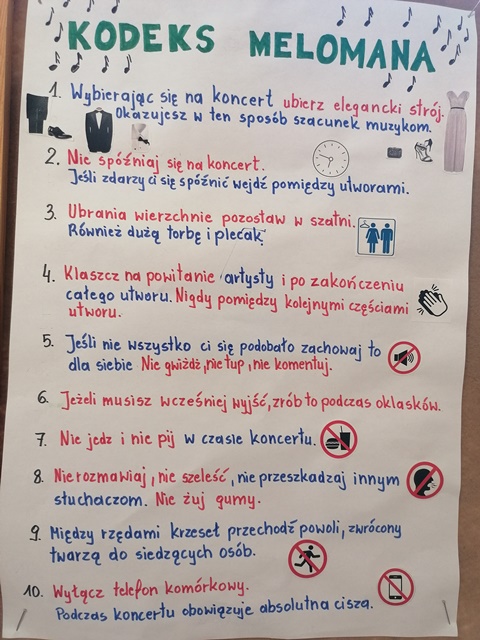 KODEKS MELOMANA
1. Wybierając się na koncert ubierz elegancki strój.
Okazujesz w ten sposób szacunek muzykom.
2. Nie spóźniaj się na koncert.
Jeśli zdarzy ci się spóźnić wejdź pomiędzy utworami.
3. Ubrania wierzchnie pozostaw w szatni.
Również dużą torbę i plecak
4. Klaszcz na powitanie artysty i po zakończeniu
całego utworu. Nigdy pomiędzy kolejnymi częściami
utworu.
5. Jeśli nie wszystko ci się podobało zachowaj to
dla siebie Nie gwiżdż, nie tup, nie komentuj.
6. Jeżeli musisz wcześniej wyjść, zrób to podczas oklasków.
7. Nie jedz i nie pij w czasie koncertu.
8. Nie rozmawiaj, nie szeleść, nie przeszkadzaj innym
słuchaczom. Nie żuj gumy.
9. Między rzędami krzeseł przechodź powoli, zwrócony
twarzą do siedzących osób.
10. Wyłącz telefon komórkowy.
Podczas koncertu obowiązuje absolutna cisza.